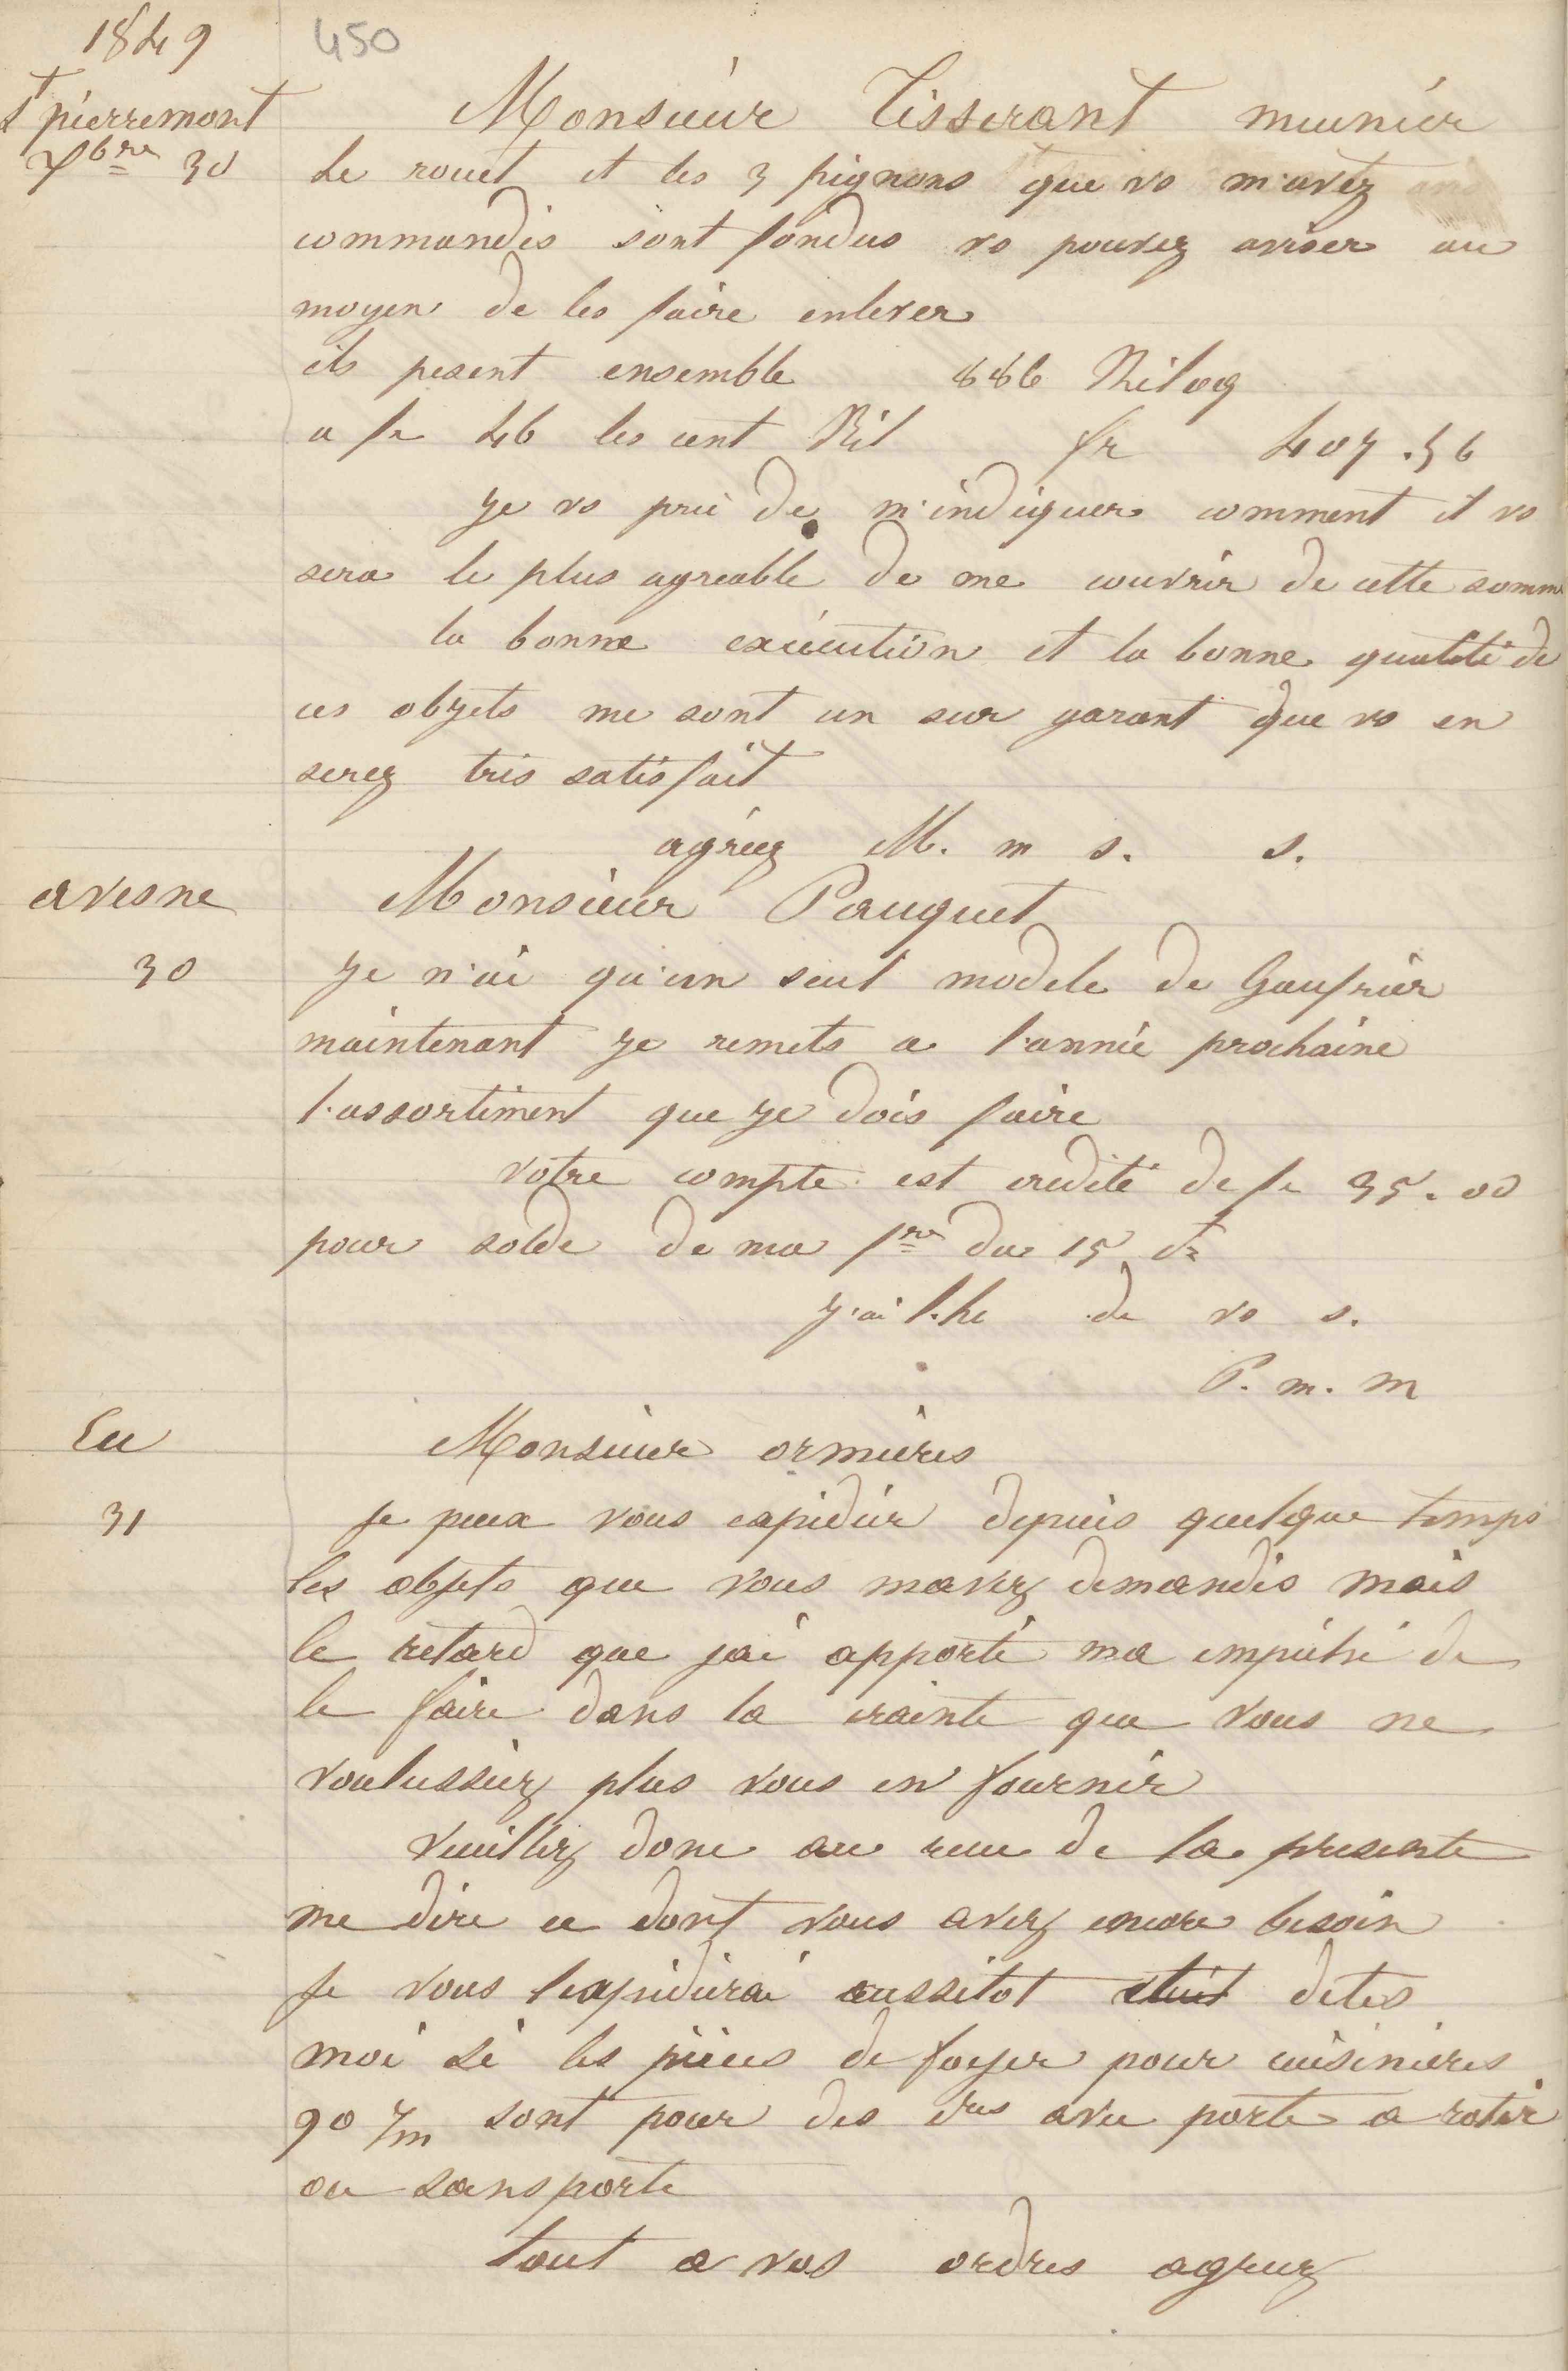 1849
450
St pierremont
7bre 30
Monsieur Tisserant meunier
Le rouet et les 3 pignons que vs m'avez
commandés sont fondus vs pouvez aviser au
moyen de les faire enlever
ils pesent ensemble 886 Kilog
a fr 46 les cent Kil fr 407.56
je vs prie de m'indiquer comment il vs
sera le plus agreable de me couvrir de cette somme
la bonne exécution et la bonne qualité de
ces objets me sont un sur garant que vs en
serez très satisfait
agréez M. m s. s.
avesne
Monsieur Pauquet
30
je n'ai qu'un seul modele de Gaufrier
maintenant je remets a l'année prochaine
l'assortiment que je dois faire
votre compte est credité de fr 35.00
pour solde de ma fre du 15 dr
j'ai l.h de vs s.
P. m. m
Eu
Monsieur ormières
31
Je peux vous expédier depuis quelque temps
les objets que vous mavez demandés mais
le retard que jai apporté ma empéché de
le faire dans la crainte que vous ne
voulussiez plus vous en fournir
Veuillez donc au recu de la presente
me dire ce dont vous avez encore besoin
Je vous lexpédierai aussitot dites
moi si les pièces de foyer pour cuisinières
90 c/m sont pour des dres avec porte a rotir
ou sans porte
tout a vos ordres agreez